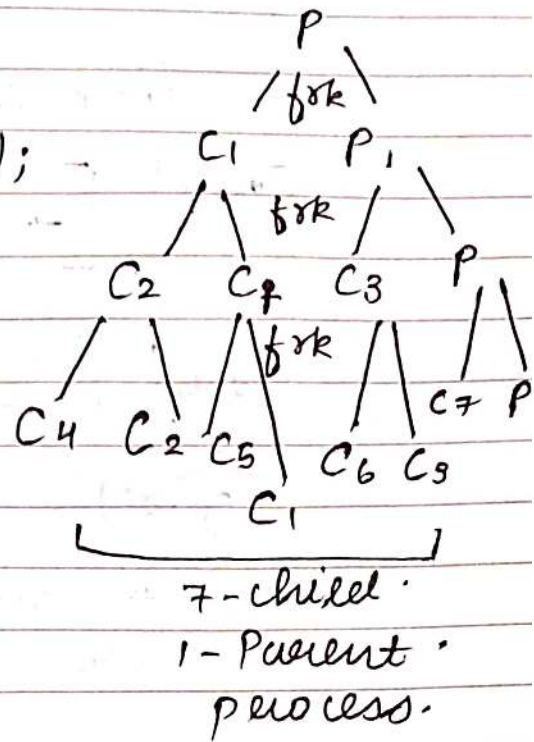 P
frk
); C1 P1
frk
C2 C1 C3 P
frk
C7 P
C4 C2 C5 C6 C3
C1
7-child.
1-Parent.
process.